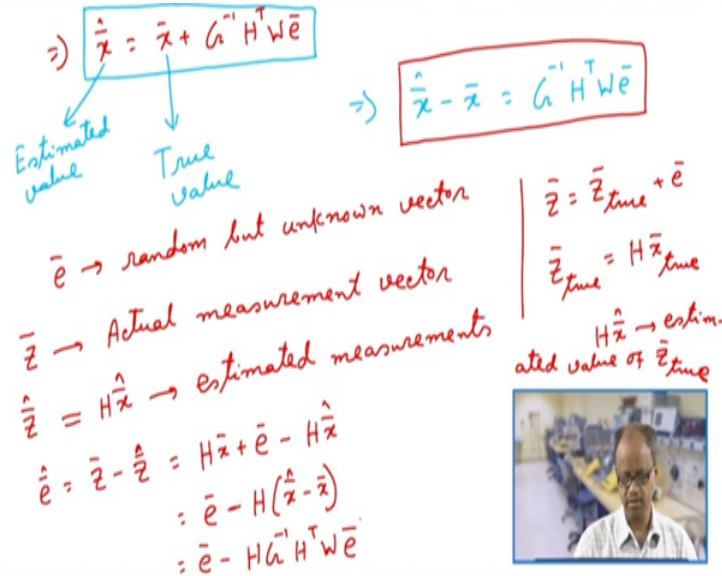 ⇒) x̂̄ = x̄ + G⁻¹ Hᵀ W ē
Estimated value
True value
⇒) x̂̄ - x̄ = G⁻¹ Hᵀ W ē
ē → random but unknown vector
z̄ → Actual measurement vector
ẑ̄ = H x̂̄ → estimated measurements
ê̄ = z̄ - ẑ̄ = H x̄ + ē - H x̂̄
= ē - H(x̂̄ - x̄)
= ē - H G⁻¹ Hᵀ W ē
z̄ = z̄ true + ē
z̄ true = H x̄ true
H x̂̄ → estim-
ated value of z̄ true